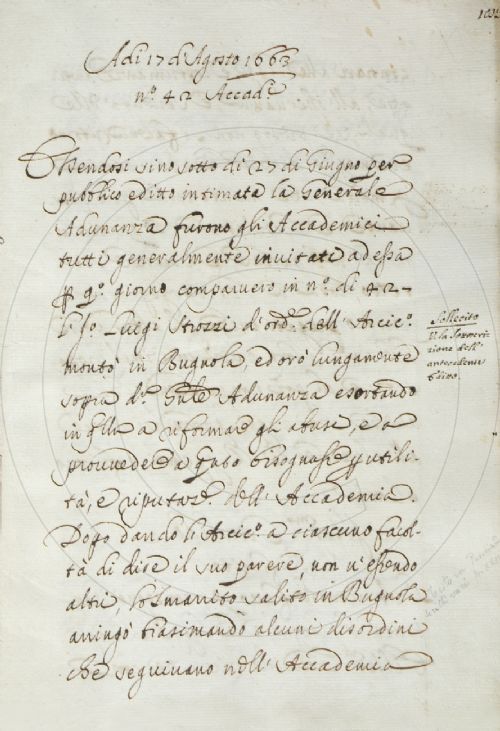 Adi 17 di Agosto 1663
n.º 42 Accad.i
Havendosi sino sotto di 27 di Giugno per
pubblico editto intimata la Generale
Adunanza furono gli Accademici
tutti generalmente invitati ad essa
p q.º giorno comparvero in n.º di 42-
Luigi Strozzi d'ord.e dell' Arcic.º
montò in Bugnola, ed orò lungamente
sopra d.ª Gn̄le Adunanza esortando
in q̄lla a riformare gli abusi, e a
provvedere a q̄nto bisognasse p utili-
tà, e riputaz.e dell' Accademia.
Dopo dando l'Arcic.º a ciascuno facol-
tà di dire il suo parere, non v'essendo
altri, lo Smarrito salito in Bugnola
aringò biasimando alcuni disordini
che seguivano nell' Accademia
Sollecito
antecedente